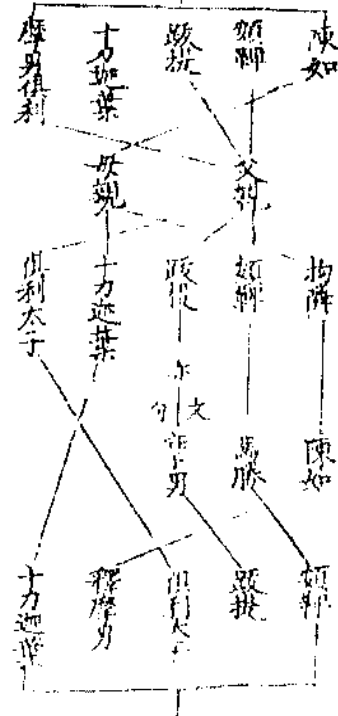 陳如
頞鞞
跋提
十力迦葉
摩男俱利
父親
母親
拘隣
頞鞞
跋提
十力迦葉
俱利太子
亦
文
陳如
馬勝
男
頞鞞
跋提
俱利太子
釋摩男
十力迦葉